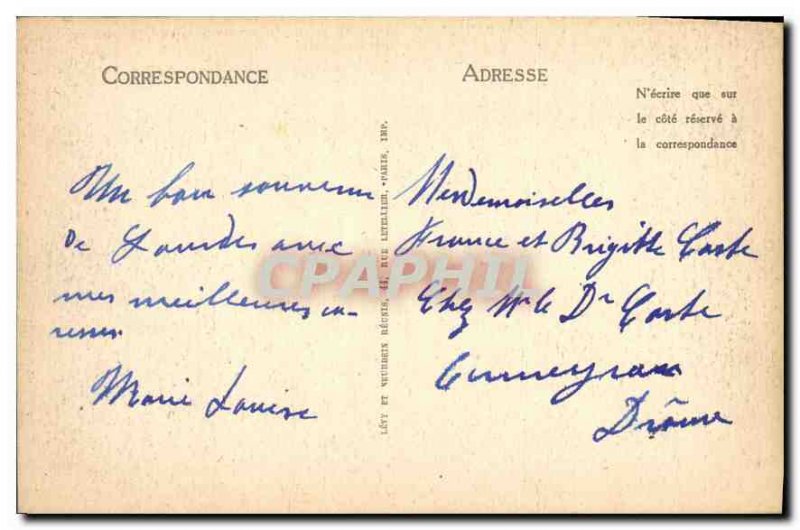 CORRESPONDANCE
ADRESSE
N'écrire que sur
le côté réservé à
la correspondance
Un bon souvenir
de Lourdes avec
mes meilleures ca-
resses
Marie Louise
LÉVY ET NEURDEIN RÉUNIS, 44, RUE LETELLIER, PARIS, IMP.
Mesdemoiselles
France et Brigitte Coste
Chez Mr le Dr Coste
Drôme
CPAPHIL